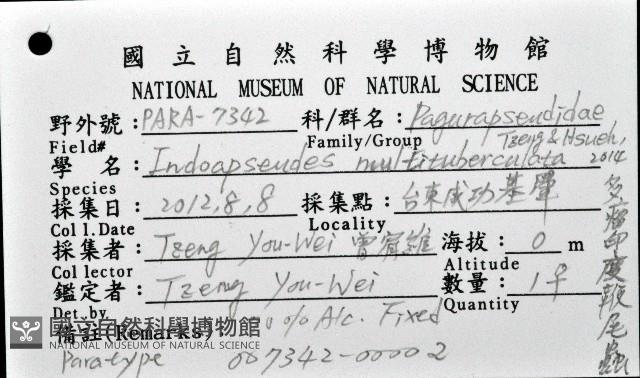 國立自然科學博物館
NATIONAL MUSEUM OF NATURAL SCIENCE
野外號：PARA-7342 科/群名：Pagurapseudidae
Field# Family/Group
學 名：Indoapseudes multituberculata Tzeng & Hsueh, 2014
Species
採集日：2012,8,8 採集點：台東成功基翬
Coll.Date Locality
採集者：Tzeng You-Wei 曾宥維 海拔：0 m
Collector Altitude
鑑定者：Tzeng You-Wei 數量：1♀
Det.by Quantity
備註(Remarks) 0% Alc. Fixed
國立自然科學博物館
NATIONAL MUSEUM OF NATURAL SCIENCE
Paratype 007342-00002
多瘤印度鞭尾蟲